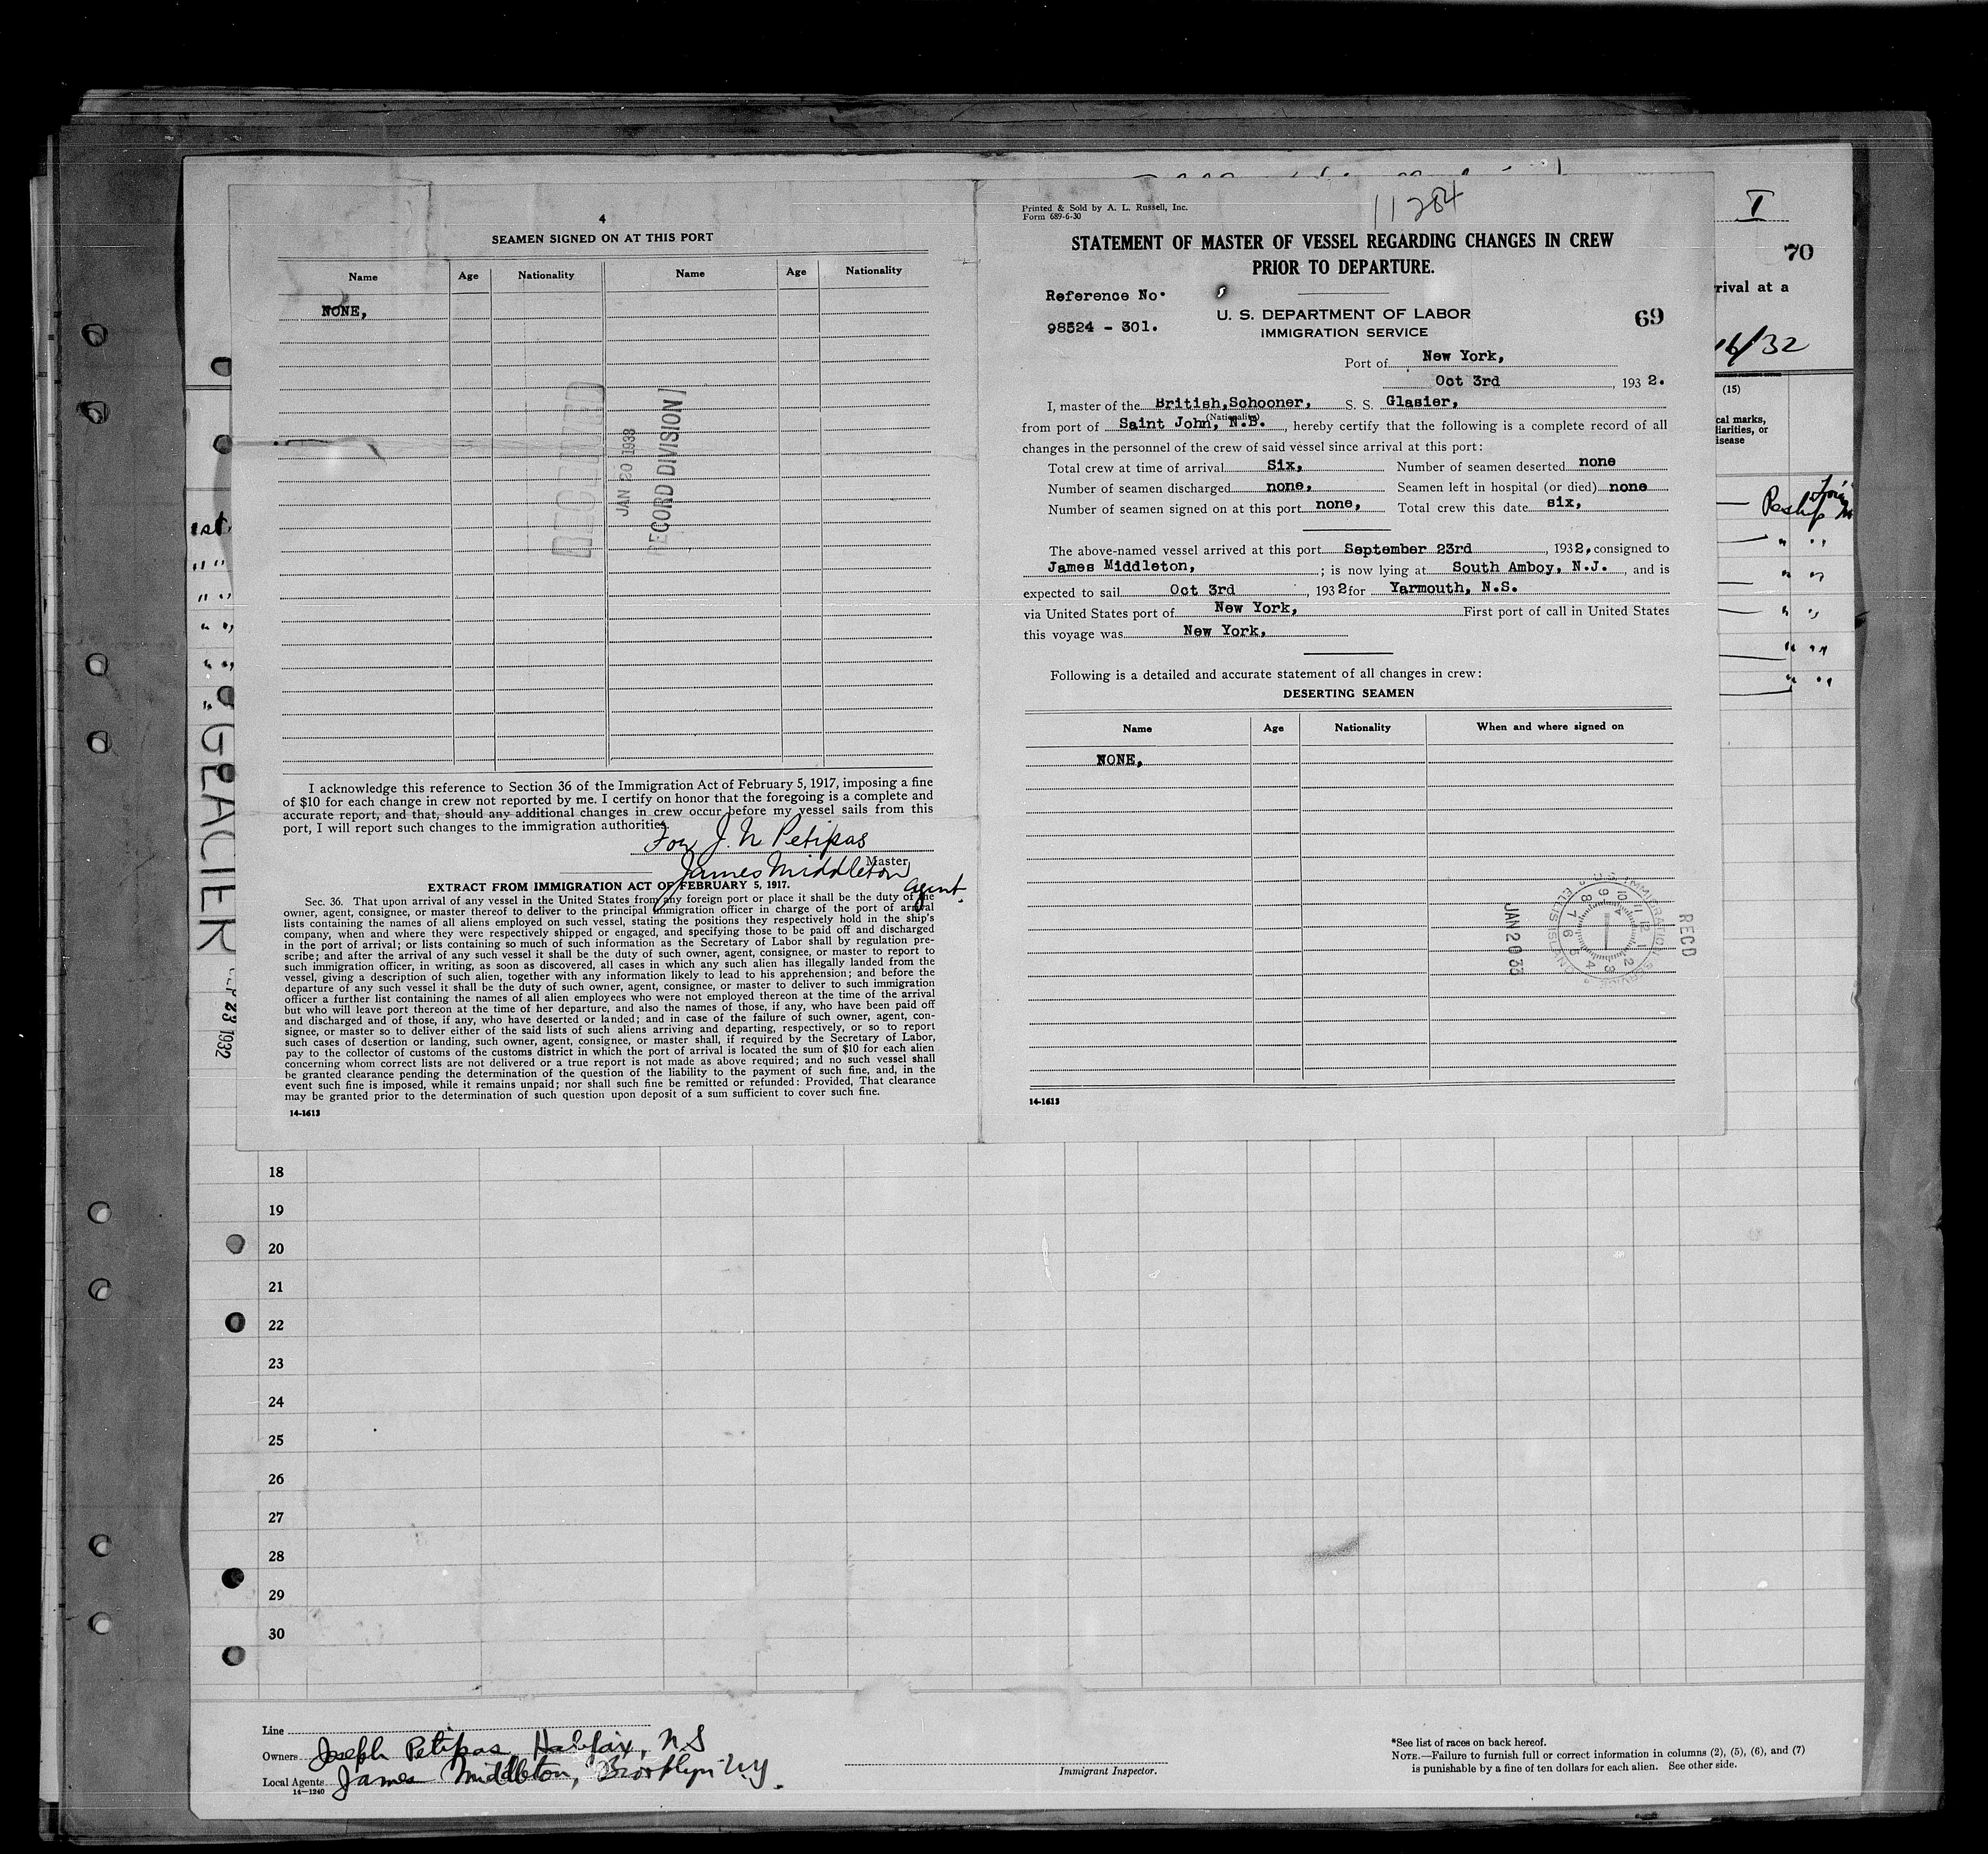 4
SEAMEN SIGNED ON AT THIS PORT
Name Age Nationality Name Age Nationality
NONE,
RECEIVED
JAN 20 1933
RECORD DIVISION
I acknowledge this reference to Section 36 of the Immigration Act of February 5, 1917, imposing a fine
of $10 for each change in crew not reported by me. I certify on honor that the foregoing is a complete and
accurate report, and that, should any additional changes in crew occur before my vessel sails from this
port, I will report such changes to the immigration authorities.
For J. N Petipas
Master
James Middleton
agent.
EXTRACT FROM IMMIGRATION ACT OF FEBRUARY 5, 1917.
Sec. 36. That upon arrival of any vessel in the United States from any foreign port or place it shall be the duty of the
owner, agent, consignee, or master thereof to deliver to the principal immigration officer in charge of the port of arrival
lists containing the names of all aliens employed on such vessel, stating the positions they respectively hold in the ship's
company, when and where they were respectively shipped or engaged, and specifying those to be paid off and discharged
in the port of arrival; or lists containing so much of such information as the Secretary of Labor shall by regulation pre-
scribe; and after the arrival of any such vessel it shall be the duty of such owner, agent, consignee, or master to report to
such immigration officer, in writing, as soon as discovered, all cases in which any such alien has illegally landed from the
vessel, giving a description of such alien, together with any information likely to lead to his apprehension; and before the
departure of any such vessel it shall be the duty of such owner, agent, consignee, or master to deliver to such immigration
officer a further list containing the names of all alien employees who were not employed thereon at the time of the arrival
but who will leave port thereon at the time of her departure, and also the names of those, if any, who have been paid off
and discharged and of those, if any, who have deserted or landed; and in case of the failure of such owner, agent, con-
signee, or master so to deliver either of the said lists of such aliens arriving and departing, respectively, or so to report
such cases of desertion or landing, such owner, agent, consignee, or master shall, if required by the Secretary of Labor,
pay to the collector of customs of the customs district in which the port of arrival is located the sum of $10 for each alien
concerning whom correct lists are not delivered or a true report is not made as above required; and no such vessel shall
be granted clearance pending the determination of the question of the liability to the payment of such fine, and, in the
event such fine is imposed, while it remains unpaid; nor shall such fine be remitted or refunded: Provided, That clearance
may be granted prior to the determination of such question upon deposit of a sum sufficient to cover such fine.
14-1613
Printed & Sold by A. L. Russell, Inc.
Form 689-6-30
11284
STATEMENT OF MASTER OF VESSEL REGARDING CHANGES IN CREW
PRIOR TO DEPARTURE.
Reference No.
98524 - 301.
U. S. DEPARTMENT OF LABOR
IMMIGRATION SERVICE
69
Port of New York,
Oct 3rd, 1932.
I, master of the British,Schooner, S. S. Glasier,
(Nationality)
from port of Saint John, N.B., hereby certify that the following is a complete record of all
changes in the personnel of the crew of said vessel since arrival at this port:
Total crew at time of arrival Six, Number of seamen deserted none
Number of seamen discharged none, Seamen left in hospital (or died) none
Number of seamen signed on at this port none, Total crew this date six,
The above-named vessel arrived at this port September 23rd, 1932, consigned to
James Middleton, ; is now lying at South Amboy, N.J., and is
expected to sail Oct 3rd, 1932 for Yarmouth, N.S.
via United States port of New York, First port of call in United States
this voyage was New York,
Following is a detailed and accurate statement of all changes in crew:
DESERTING SEAMEN
Name Age Nationality When and where signed on
NONE,
RECD
U.S. IMMIGRATION SERVICE ELLIS ISLAND
JAN 20 33
14-1613
I
70
rival at a
16/32
(15)
cal marks,
liarities, or
isease
1st
GLACIER
23 1932
18
19
20
21
22
23
24
25
26
27
28
29
30
Line
Owners Joseph Petipas Halifax, NS
Local Agents James Middleton, Brooklyn N.Y.
14-1240
Immigrant Inspector.
*See list of races on back hereof.
NOTE.—Failure to furnish full or correct information in columns (2), (5), (6), and (7)
is punishable by a fine of ten dollars for each alien. See other side.